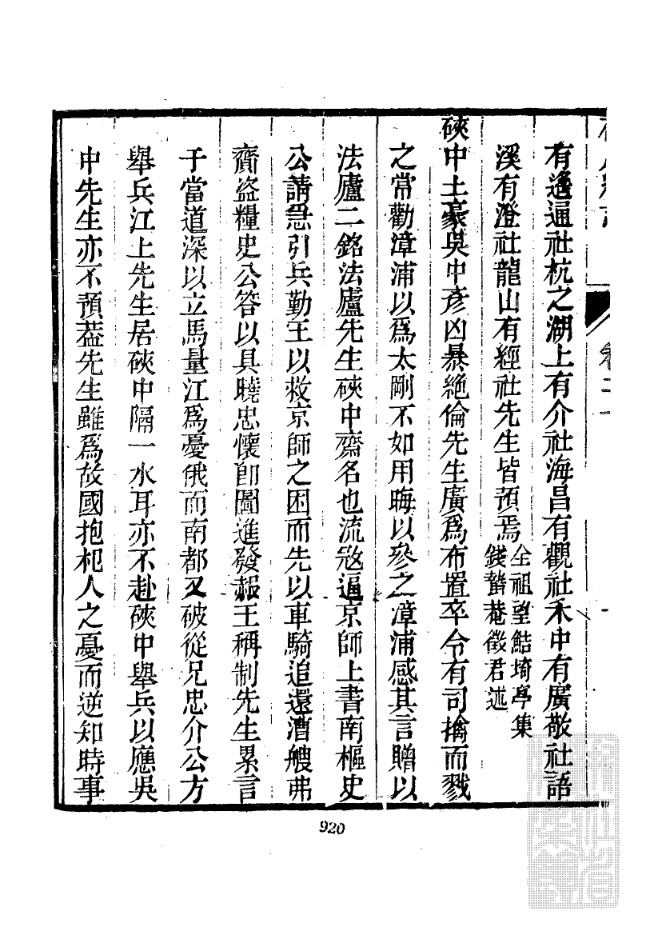 卷二十一
有邊逼社杭之湖上有介社海昌有觀社禾中有廣敬社語
溪有澄社龍山有經社先生皆預焉全祖望鮚埼亭集
錢蟄菴徵君述
硤中土豪吳中彥凶暴絕倫先生廣爲布置卒令有司擒而戮
之常勸漳浦以爲太剛不如用晦以參之漳浦感其言贈以
法廬二銘法廬先生硤中齋名也流寇逼京師上書南樞史
公請急引兵勤王以救京師之困而先以車騎追還漕艘弗
齎盜糧史公答以具曉忠懷卽圖進發赧王稱制先生累言
于當道深以立馬量江爲憂俄而南都又破從兄忠介公方
舉兵江上先生居硤中隔一水耳亦不赴硤中舉兵以應吳
中先生亦不預葢先生雖爲故國抱杞人之憂而逆知時事
920